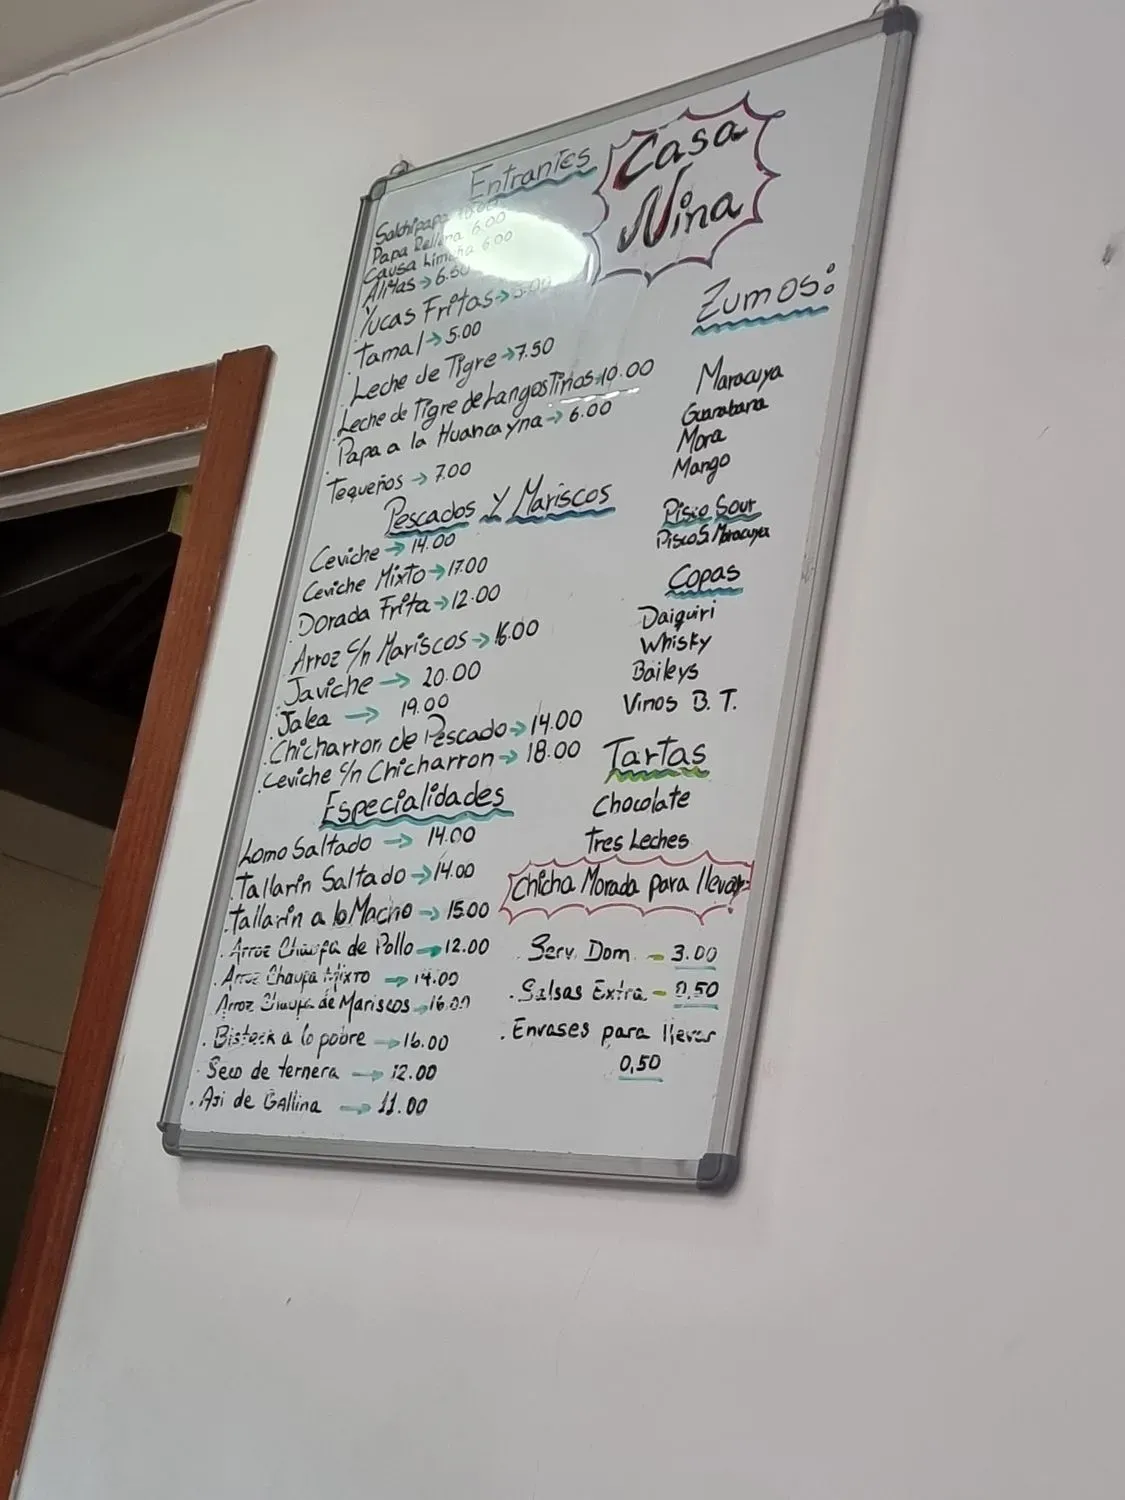 Casa
Nina
Entrantes
Salchipapa 10.00
Papa Rellena 6.00
Causa Limeña 6.00
Alitas → 6.50
Yucas Fritas → 5.00
Tamal → 5.00
Leche de Tigre → 7.50
Leche de Tigre de Langostinos → 10.00
Papa a la Huancayna → 6.00
Tequeños → 7.00
Pescados Y Mariscos
Ceviche → 14.00
Ceviche Mixto → 17.00
Dorada Frita → 12.00
Arroz c/n Mariscos → 16.00
Javiche → 20.00
Jalea → 19.00
Chicharron de Pescado → 14.00
Ceviche c/n Chicharron → 18.00
Especialidades
Lomo Saltado → 14.00
Tallarin Saltado → 14.00
Tallarin a lo Macho → 15.00
Arroz Chaufa de Pollo → 12.00
Arroz Chaufa Mixto → 14.00
Arroz Chaufa de Mariscos → 16.00
Bisteck a lo pobre → 16.00
Seco de ternera → 12.00
Aji de Gallina → 11.00
Zumos:
Maracuya
Guanabana
Mora
Mango
Pisco Sour
Pisco S. Maracuya
Copas
Daiquiri
Whisky
Baileys
Vinos B. T.
Tartas
Chocolate
Tres Leches
Chicha Morada para llevar
Serv. Dom. - 3.00
Salsas Extra - 0,50
Envases para llevar
0,50